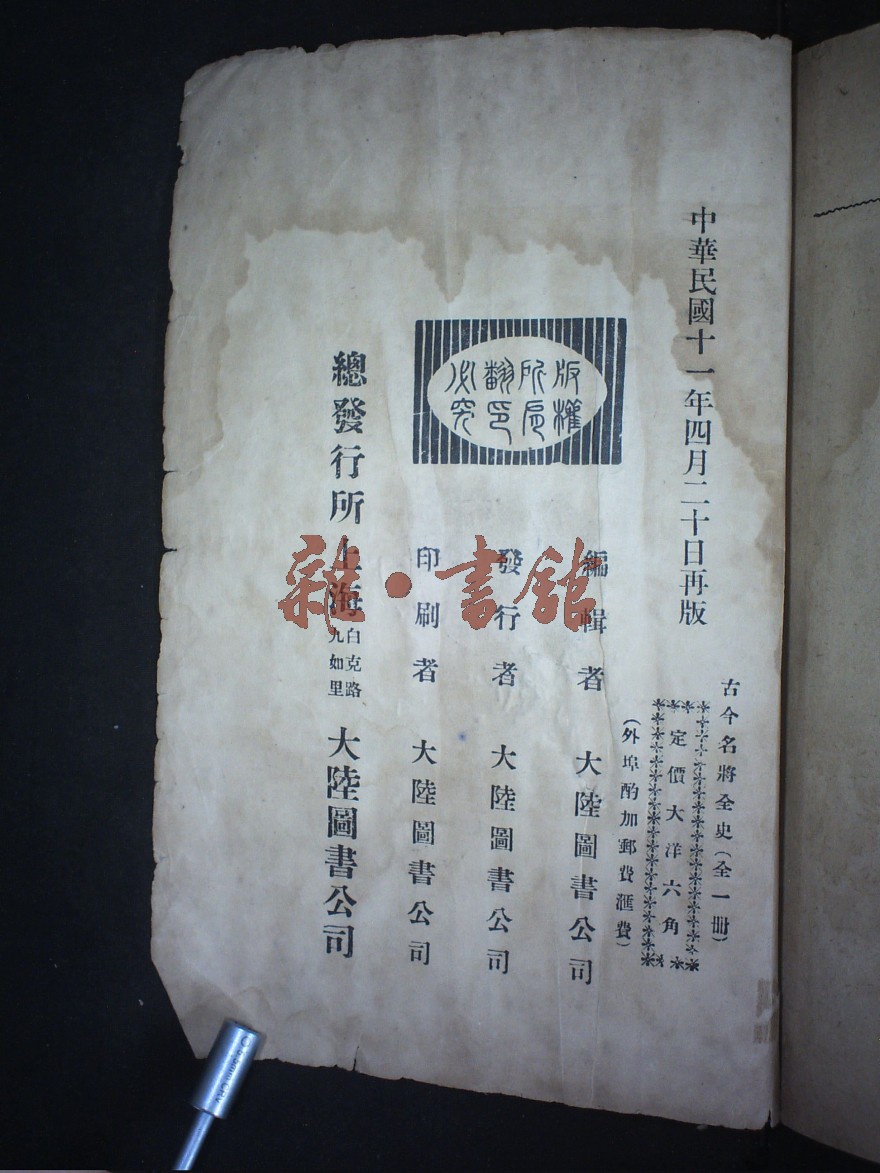 中華民國十一年四月二十日再版
古今名將全史(全一冊)
定價大洋六角
(外埠酌加郵費滙費)
版權
所有
翻印
必究
編輯者 大陸圖書公司
發行者 大陸圖書公司
印刷者 大陸圖書公司
總發行所 上海白克路九如里 大陸圖書公司
雜·書館